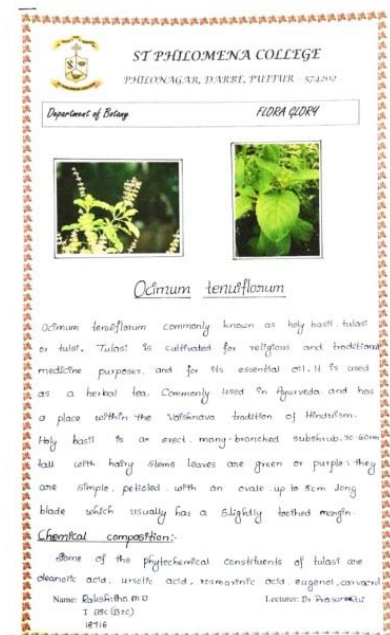 ST PHILOMENA COLLEGE
PHILONAGAR, DARBE, PUTTUR - 574202
Department of Botany FLORA GLORY
Ocimum tenuiflorum
Ocimum tenuiflorum commonly known as holy basil. tulasi
or tulsi. Tulasi is cultivated for religious and traditional
medicine purposes. and for its essential oil. It is used
as a herbal tea. Commonly used in Ayurveda. and has
a place within the Vaishnava tradition of Hinduism.
Holy basil is an erect. many-branched subshrub. 30-60cm
tall with hairy stems leaves are green or purple: they
are simple. petioled. with an ovate. up to 5cm long
blade which usually has a slightly toothed margin.
Chemical composition:-
Some of the phytochemical constituents of tulasi are
oleanolic acid. ursolic acid. rosmarinic acid. eugenol, carvacrol
Name: Rakshitha M.D Lecturer: Dr
I BSC
18716